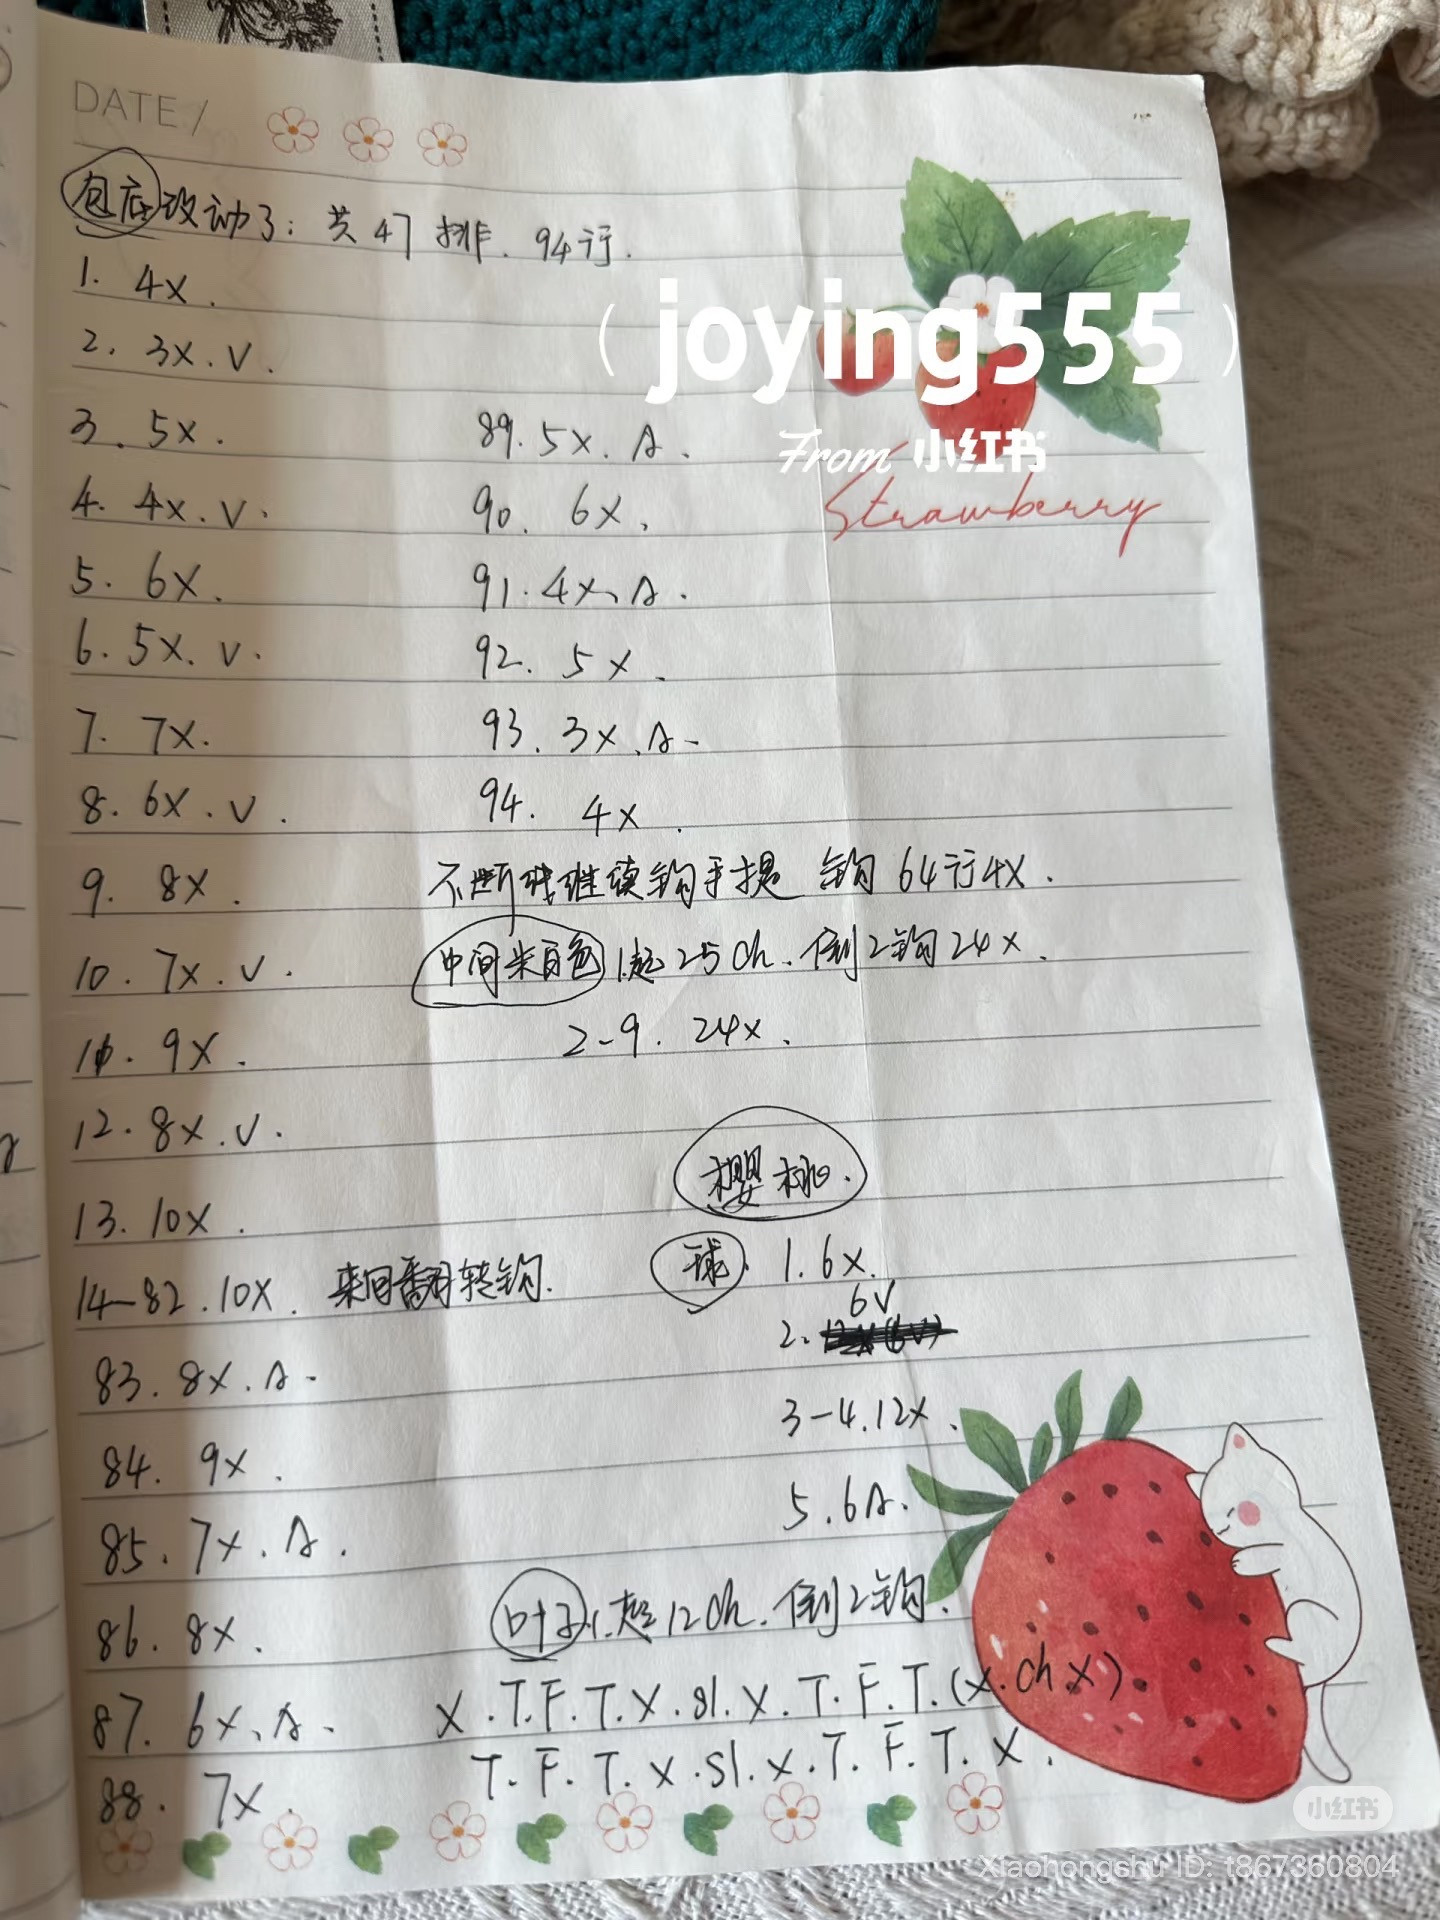 DATE/
包底改动了：共47排．94行．
1．4X．
2．3X．V．
3．5X．
4．4X．V．
5．6X．
6．5X．V．
7．7X．
8．6X．V．
9．8X．
10．7X．V．
11．9X．
12．8X．V．
13．10X．
14—82．10X．来回翻转钩．
83．8X．A．
84．9X．
85．7X．A．
86．8X．
87．6X、A．
88．7X．
89．5X．A．
90．6X．
91．4X、A．
92．5X．
93．3X．A．
94．4X．
不断线继续钩手提 钩64行4X．
中间米白色 1.起25ch．倒2钩24X．
2-9．24X．
樱桃．
球．1．6X．
6V
2．
3-4．12X．
5．6A．
叶子．1．起12ch．倒2钩．
X．T．F．T．X．sl．X．T．F．T．(X．ch．X)．
T．F．T．X．sl．X．T．F．T．X．
(joying555)
From 小红书
Strawberry
小红书
Xiaohongshu ID: t867360804